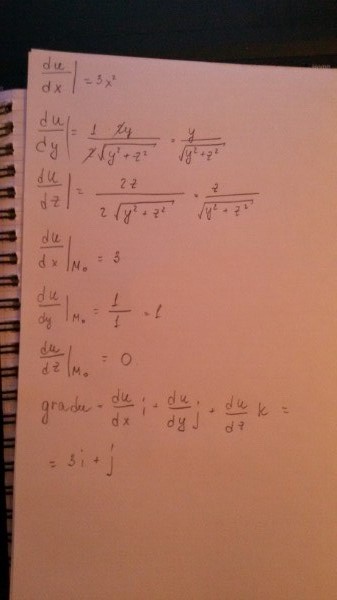 du/dx | = 3x²
du/dy | = 1 2y / 2√(y²+z²) = y / √(y²+z²)
du/dz | = 2z / 2√(y²+z²) = z / √(y²+z²)
du/dx |M₀ = 3
du/dy |M₀ = 1/1 = 1
du/dz |M₀ = 0
gradu = du/dx i + du/dy j + du/dz k =
= 3i + j